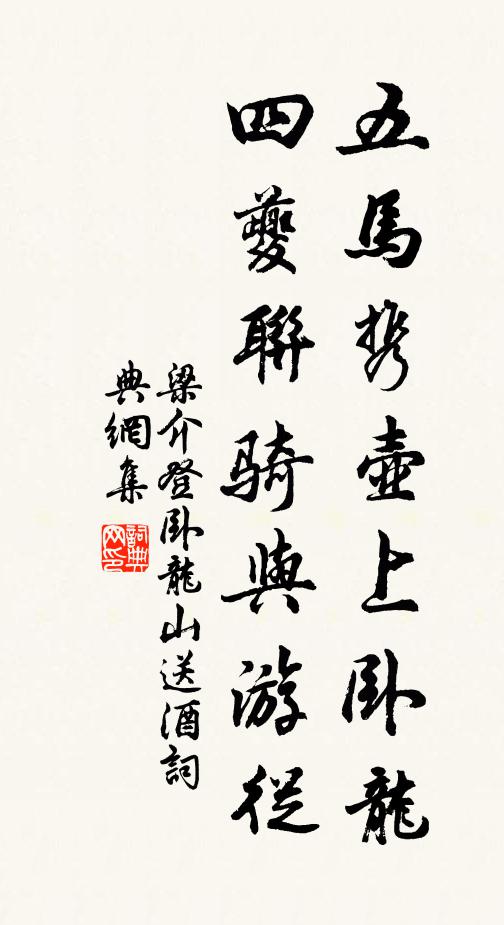 五馬攜壺上卧龍
四夔聯騎與游從
梁介登卧龍山送酒詞
典網集
詞典网印